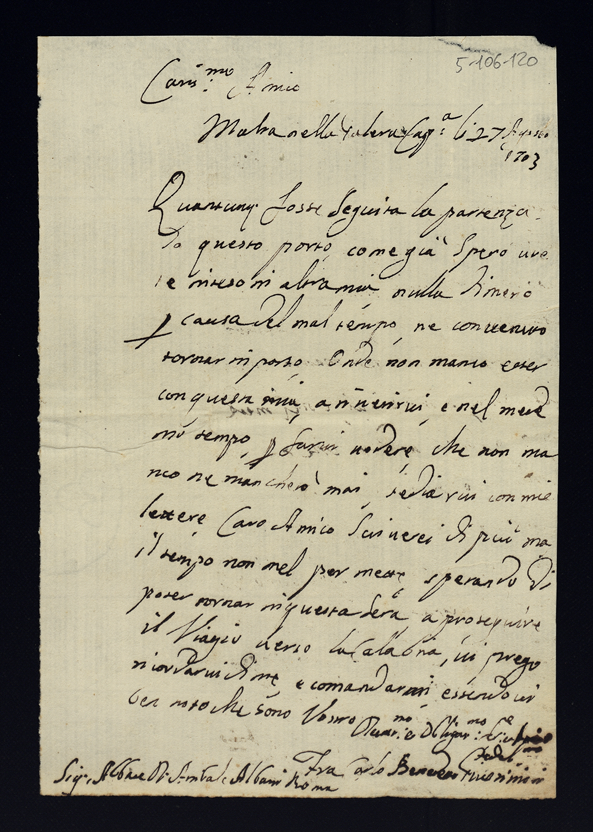 5-106-120
Caris.mo Amico
Malta nella Galera Cap.a li 27 Agosto
1703
Quantunq fosse seguita la partenza
da questo porto, come già spero
inteso in altra mia, nulla dimeno
p causa del mal tempo, ne convenuto
tornar in porto, Onde non manco esser
con questa mia, a riverirvi, e nel mede
mo tempo, p farvi vedere, che non ma
nco ne mancherò mai, tediarvi con mie
lettere, Caro Amico scriverei di più ma
il tempo non mel permette sperando di
poter tornar in questa sera, a proseguire
il Viagio verso la Calabria, vi prego
ricordarvi di me, e comandarmi, essendovi
ben noto che sono Vostro
Devot.mo e Obligat.mo
Fra Carlo
Sig. Abbate D. Anibale Albani Roma